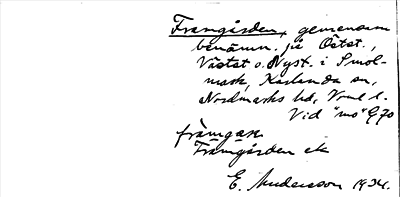 Framgården, gemensam
benämn. på Östst.,
Västst o. Nyst. i Smol-
mark, Karlanda sn,
Nordmarks hd, Vrml l.
Vid "mo" 970
framgaʀ
Framgården etc
E. Andersson 1934.